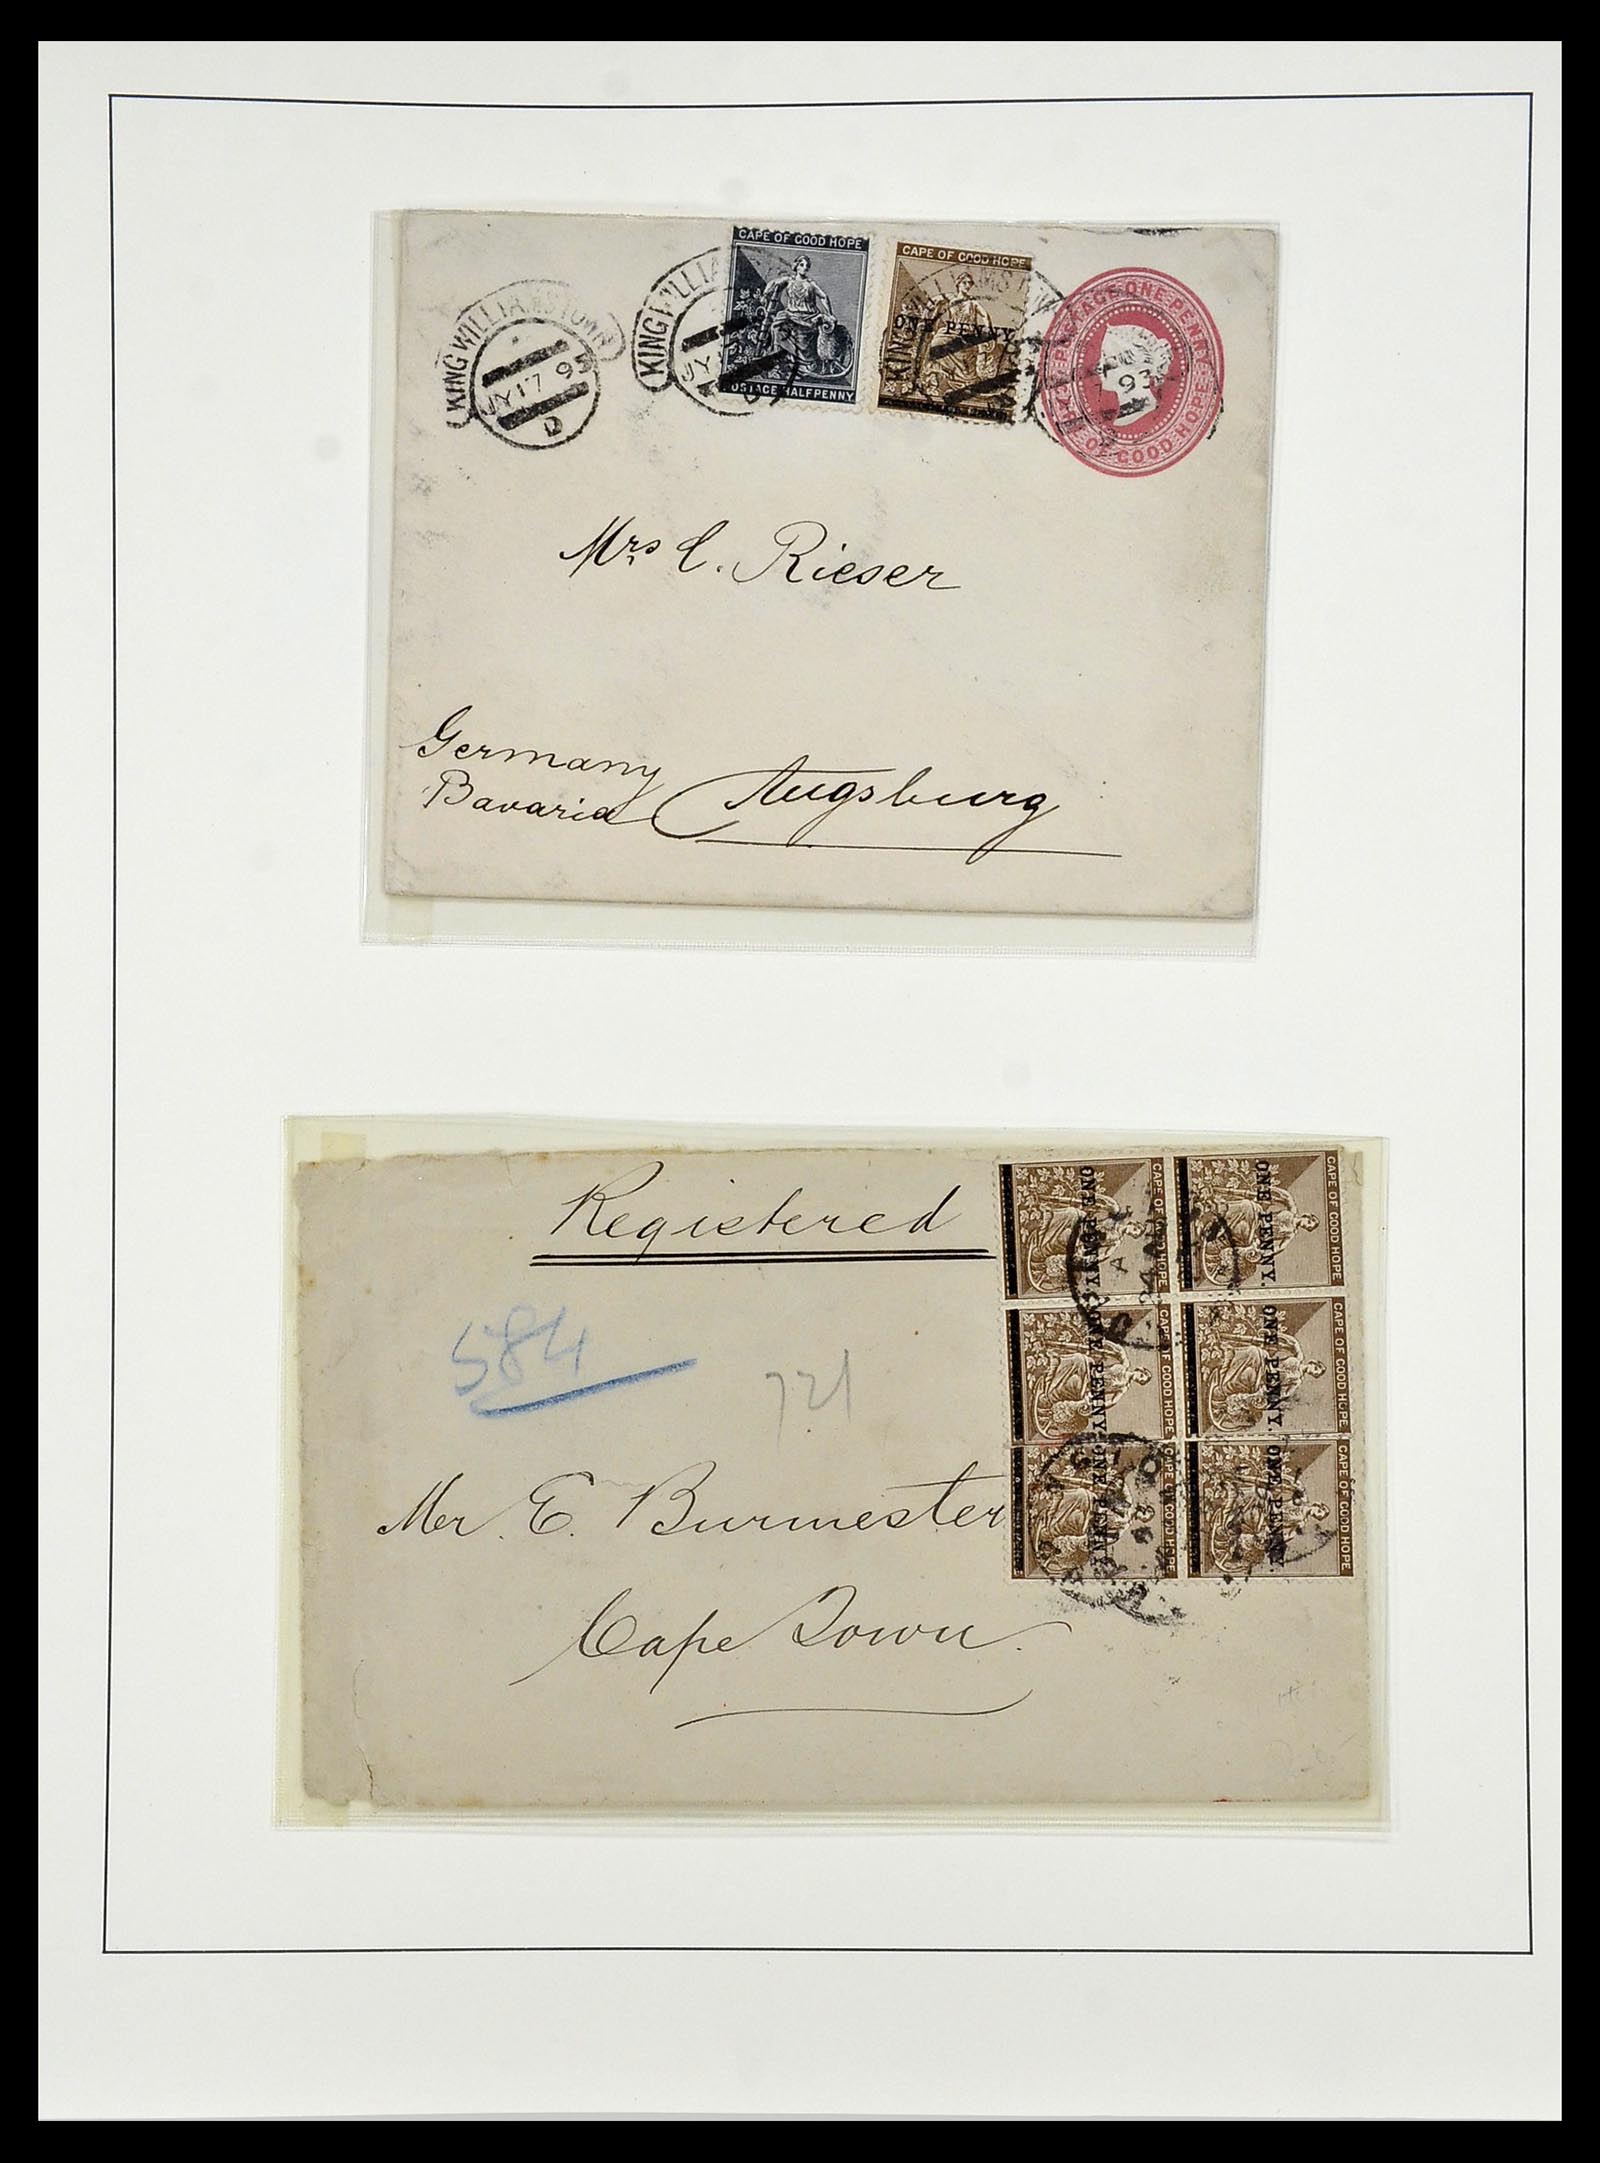 CAPE OF GOOD HOPE
POSTAGE HALFPENNY
CAPE OF GOOD HOPE
ONE PENNY.
POSTAGE ONE PENNY
OF GOOD HOPE
KING WILLIAMSTOWN
JY 17 93
D
KING WILLIAMSTOWN
JY
93
Mrs C. Rieser
Germany
Bavaria
Augsburg
Registered
584
721
Mr. E. Burmester
Cape Town.
CAPE OF GOOD HOPE
ONE PENNY.
CAPE OF GOOD HOPE
ONE PENNY.
CAPE OF GOOD HOPE
ONE PENNY.
CAPE OF GOOD HOPE
ONE PENNY.
CAPE OF GOOD HOPE
ONE PENNY.
CAPE OF GOOD HOPE
ONE PENNY.